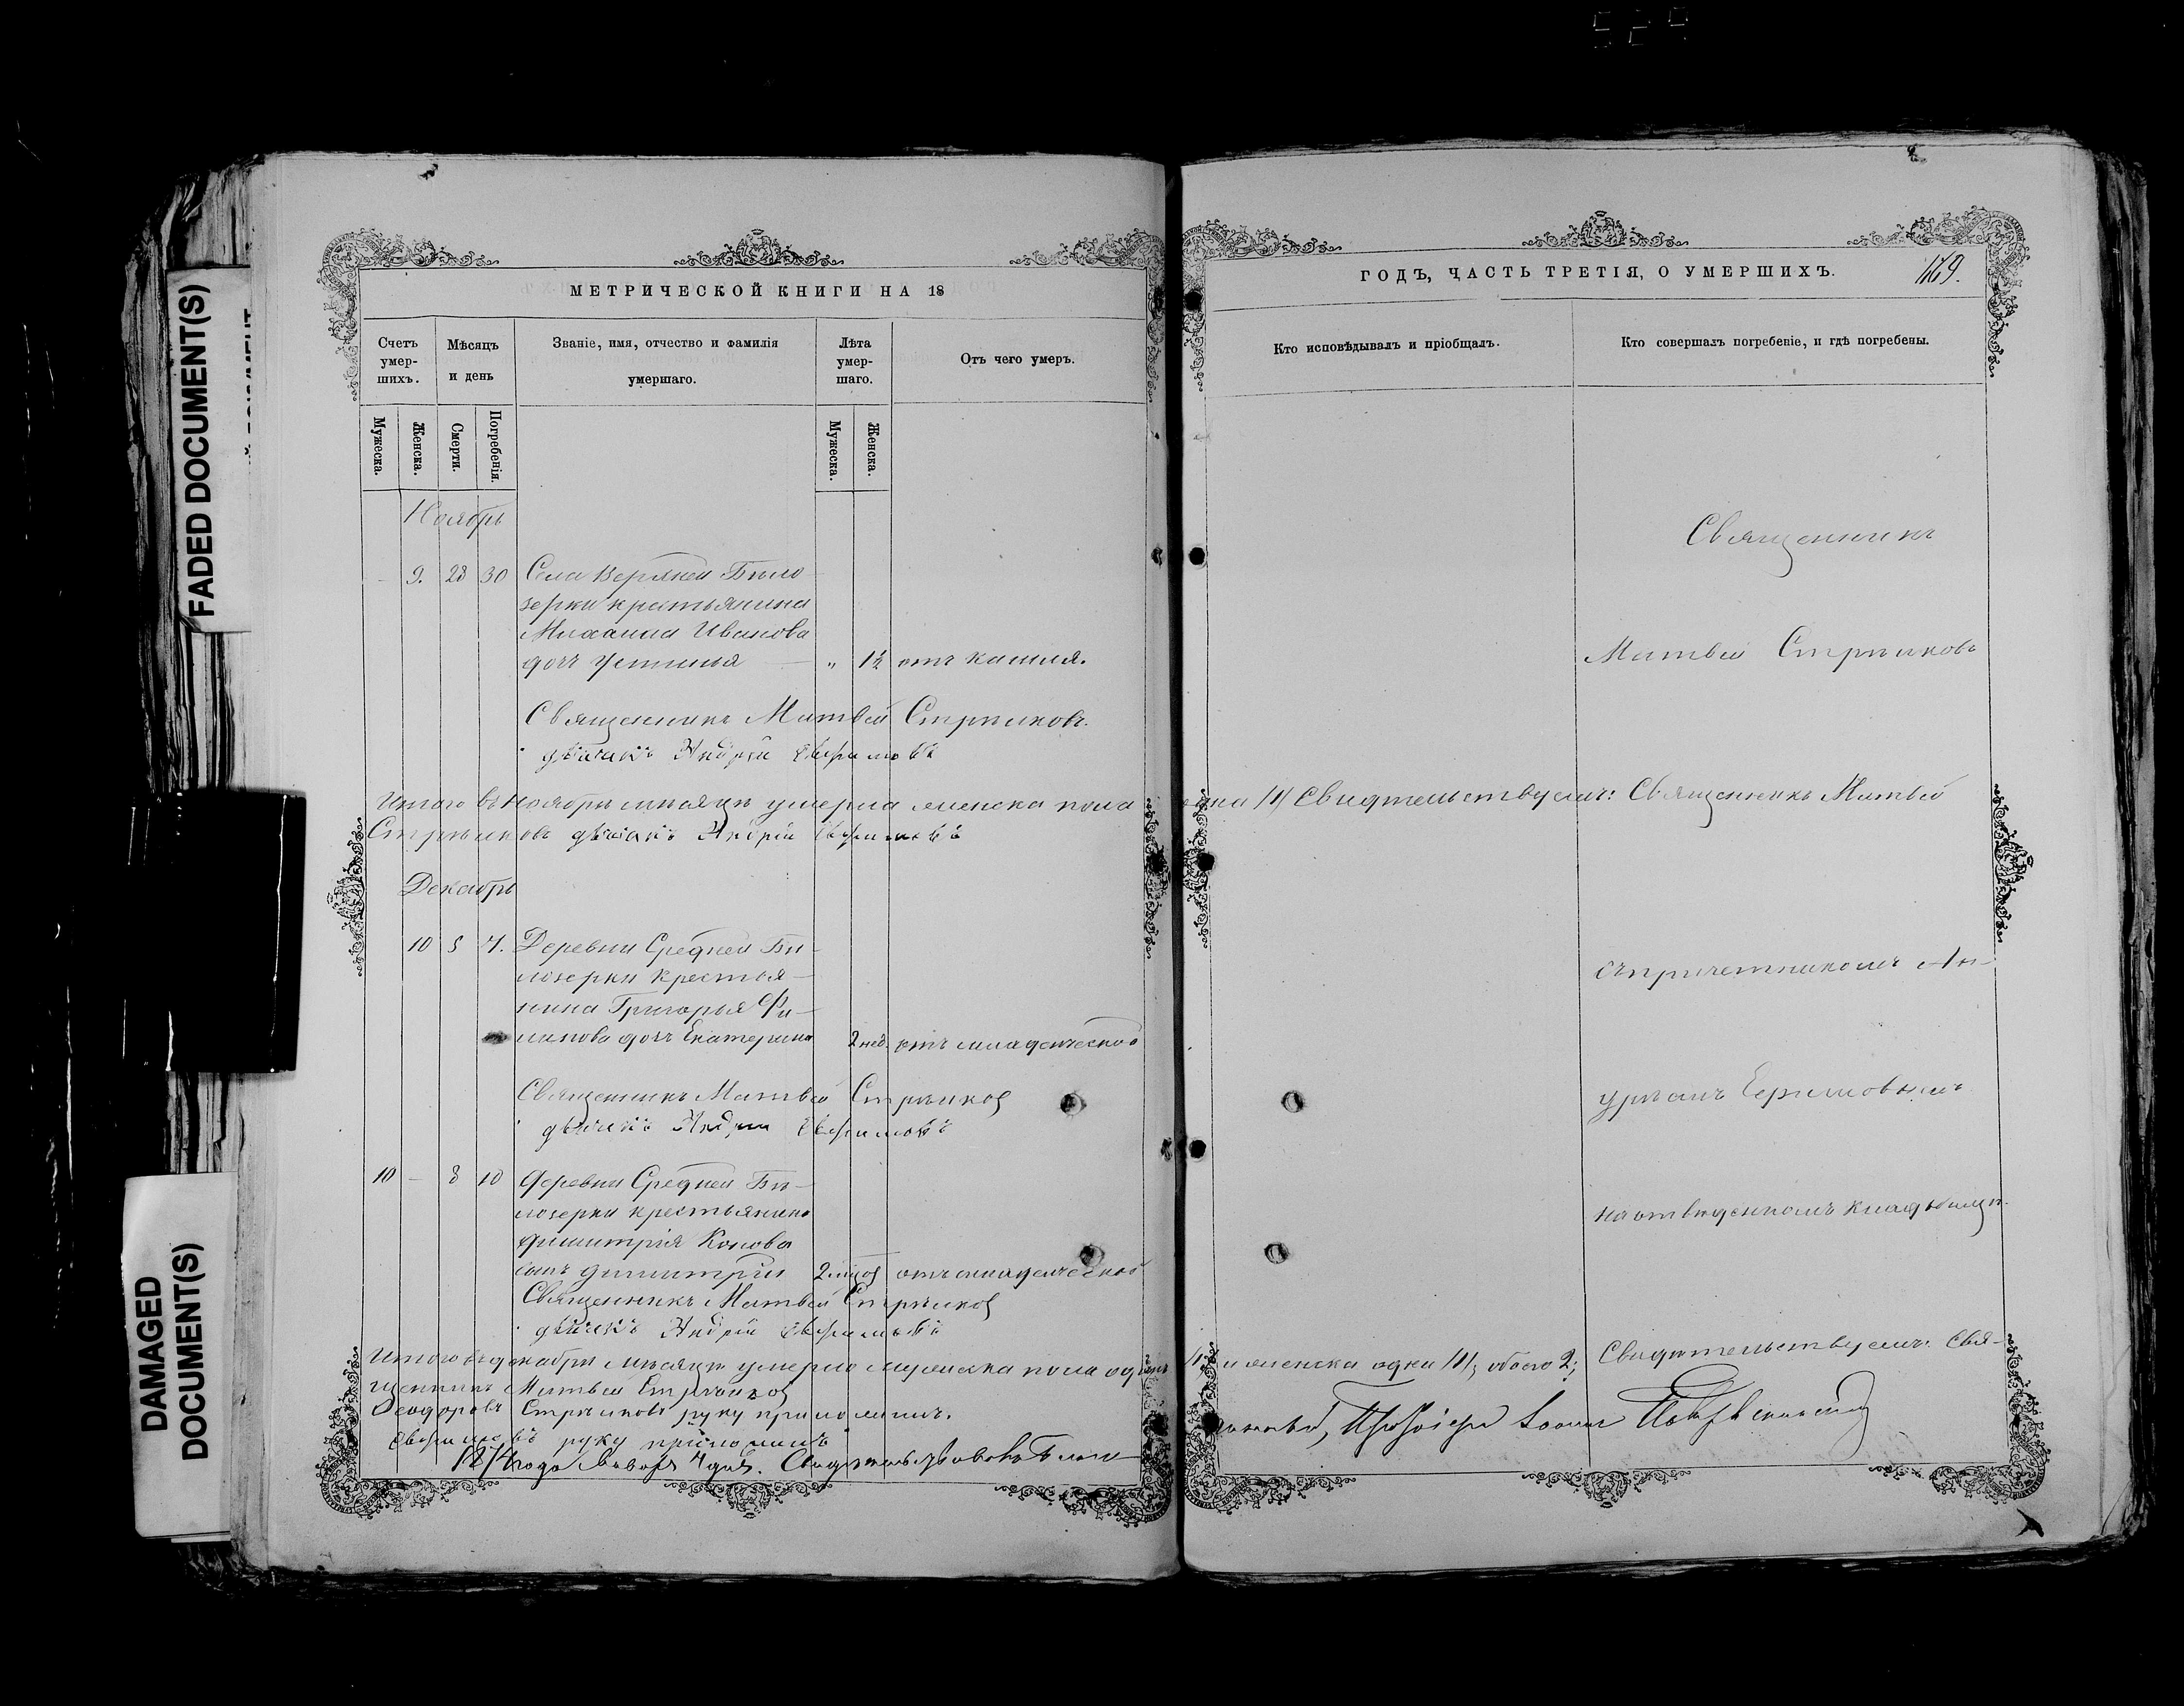 529
FADED DOCUMENT(S)
DAMAGED
DOCUMENT(S)
МЕТРИЧЕСКОЙ КНИГИ НА 18
Счетъ умер-шихъ.
Мѣсяцъ и день
Званіе, имя, отчество и фамилія умершаго.
Лѣта умер-шаго.
Отъ чего умеръ.
Мужеска.
Женска.
Смерти.
Погребенія.
Мужеска.
Женска.
Ноябрь
9. 28 30 Села Верхней Бѣло
зерки крестьянина
Михаила Иванова
дочь Устинья — „ 1½ отъ кашля.
Священникъ Матвей Стрѣлковъ.
дьячекъ Андрей
Итого въ Ноябрѣ мѣсяцѣ умерла женска пола
Стрѣлковъ дьячекъ Андрей
Декабрь
10 5 7. Деревни Средней Бѣ-
лозерки крестья-
нина Григорья Фи-
липова дочь Екатерина 2 нед. отъ младенческой
Священникъ Матвей Стрѣлковъ
дьячекъ Андрей
10 — 8 10 Деревни Средней Бѣ-
лозерки крестьянина
Димитрія Конова
сынъ Димитрий 2 отъ младенческой
Священникъ Матвей Стрѣлковъ
дьячекъ Андрей
Итого въ декабрѣ мѣсяцѣ умерло мужеска пола одинъ
щенникъ Матвей Стрѣлковъ
Стрѣлковъ руку приложилъ.
руку приложилъ
1874 года Января 4 дня.
ГОДЪ, ЧАСТЬ ТРЕТІЯ, О УМЕРШИХЪ.
169.
Кто исповѣдывалъ и пріобщалъ.
Кто совершалъ погребеніе, и гдѣ погребены.
Священникъ
Матвей Стрѣлковъ
одна /1/ Свидѣтельствуемъ: Священникъ Матвей
съ причетникомъ Ан-
на отведенномъ кладбищѣ.
/1/ и женска одна /1/, обоего 2; Свидѣтельствуемъ: Свя-